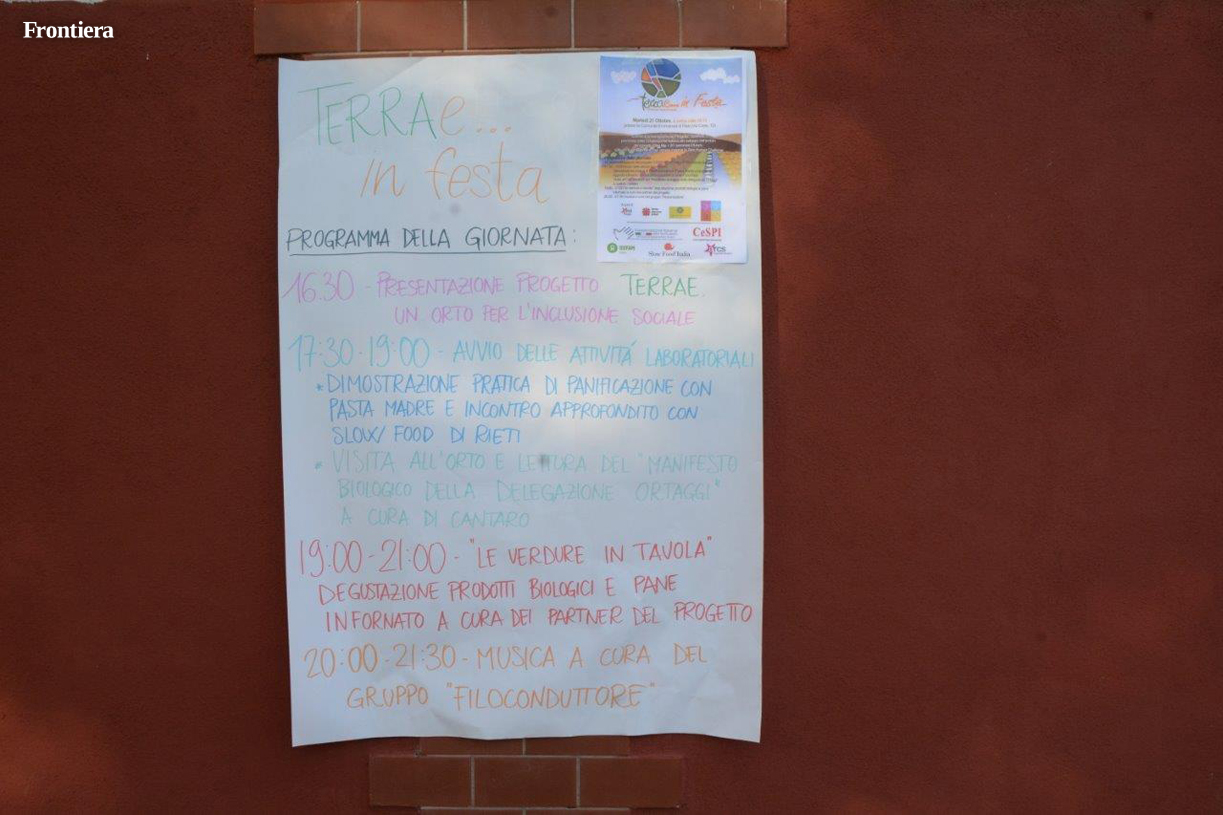 Frontiera
TERRAe...
in festa
PROGRAMMA DELLA GIORNATA:
16.30 - PRESENTAZIONE PROGETTO TERRAE.
UN ORTO PER L'INCLUSIONE SOCIALE
17:30-19:00 - AVVIO DELLE ATTIVITÁ LABORATORIALI
* DIMOSTRAZIONE PRATICA DI PANIFICAZIONE CON
PASTA MADRE E INCONTRO APPROFONDITO CON
SLOW FOOD DI RIETI
* VISITA ALL'ORTO E LETTURA DEL "MANIFESTO
BIOLOGICO DELLA DELEGAZIONE ORTAGGI"
A CURA DI CANTARO
19:00-21:00 - "LE VERDURE IN TAVOLA"
DEGUSTAZIONE PRODOTTI BIOLOGICI E PANE
INFORNATO A CURA DEI PARTNER DEL PROGETTO
20:00-21:30 - MUSICA A CURA DEL
GRUPPO "FILOCONDUTTORE"
Terrae... in Festa
CeSPI
OXFAM
Slow Food Italia